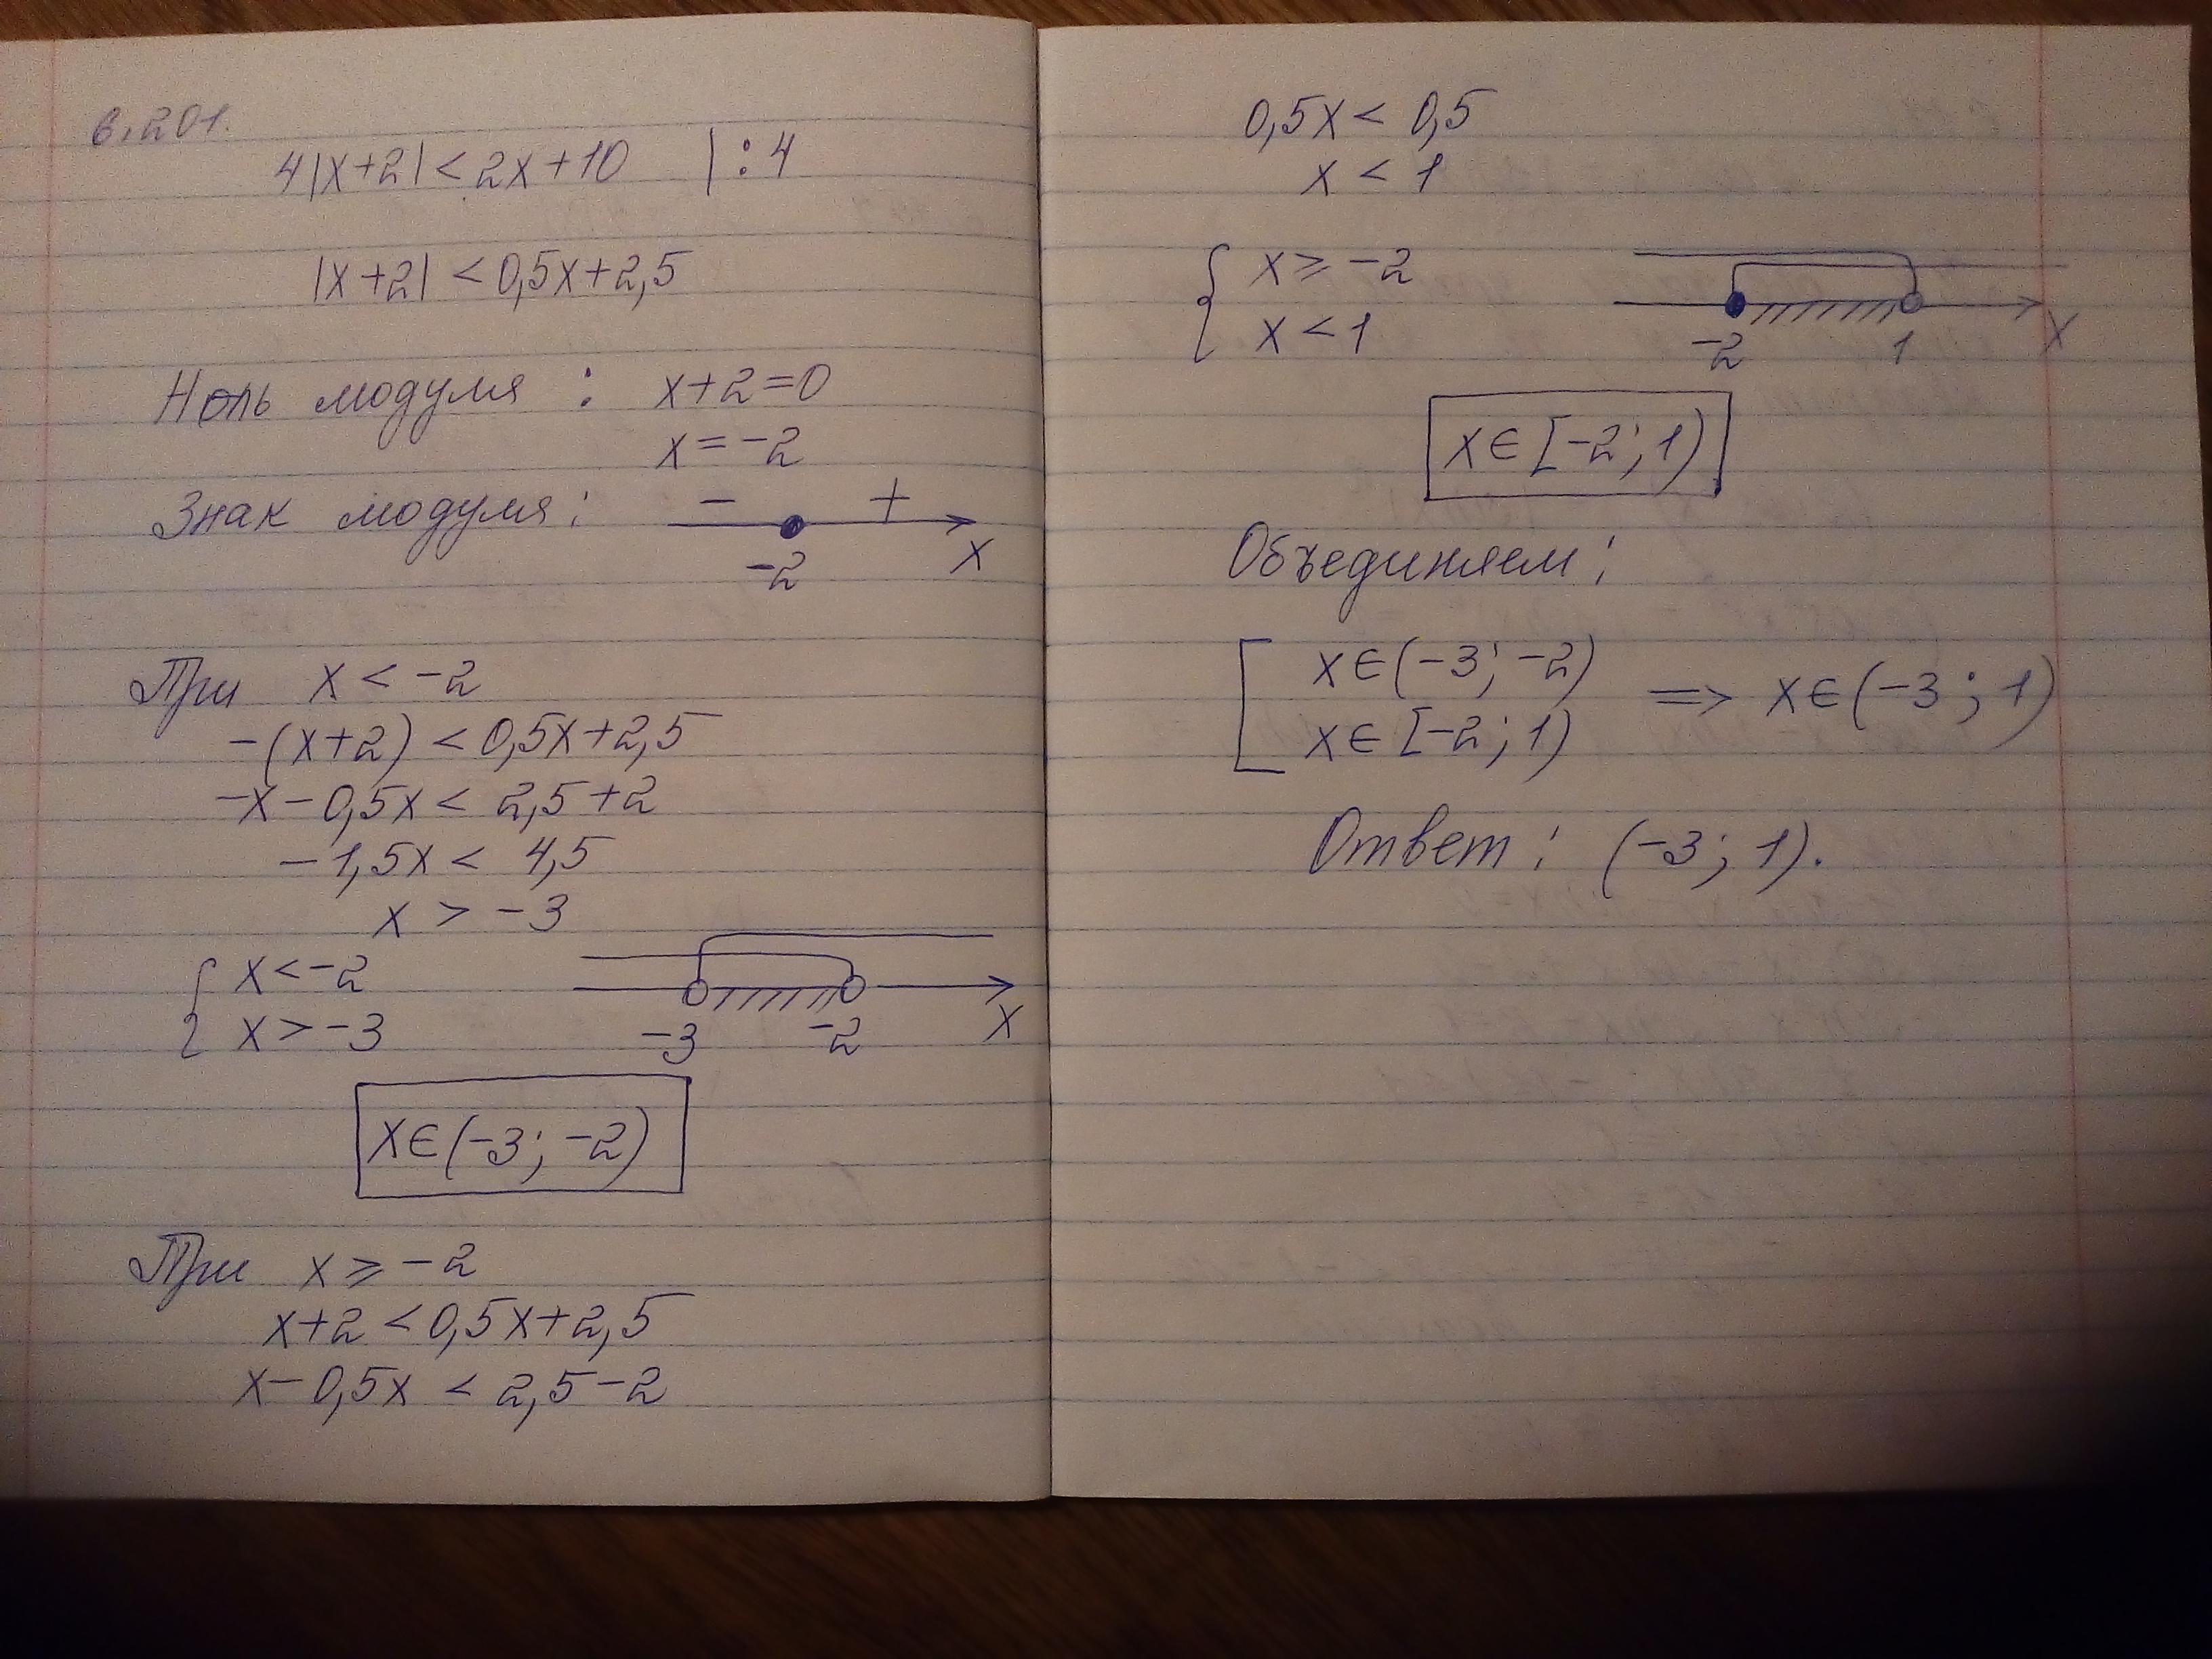 6.201.
4|x+2| < 2x+10 | : 4
|x+2| < 0,5x+2,5
Ноль модуля : x+2=0
x = -2
Знак модуля: - +
-2 x
При x < -2
-(x+2) < 0,5x+2,5
-x - 0,5x < 2,5+2
-1,5x < 4,5
x > -3
{ x < -2
x > -3
-3 -2 x
x∈(-3; -2)
При x ⩾ -2
x+2 < 0,5x+2,5
x - 0,5x < 2,5-2
0,5x < 0,5
x < 1
{ x ⩾ -2
x < 1
-2 1 x
x∈[-2; 1)
Объединяем:
[ x∈(-3; -2)
x∈[-2; 1)
=> x∈(-3; 1)
Ответ: (-3; 1).